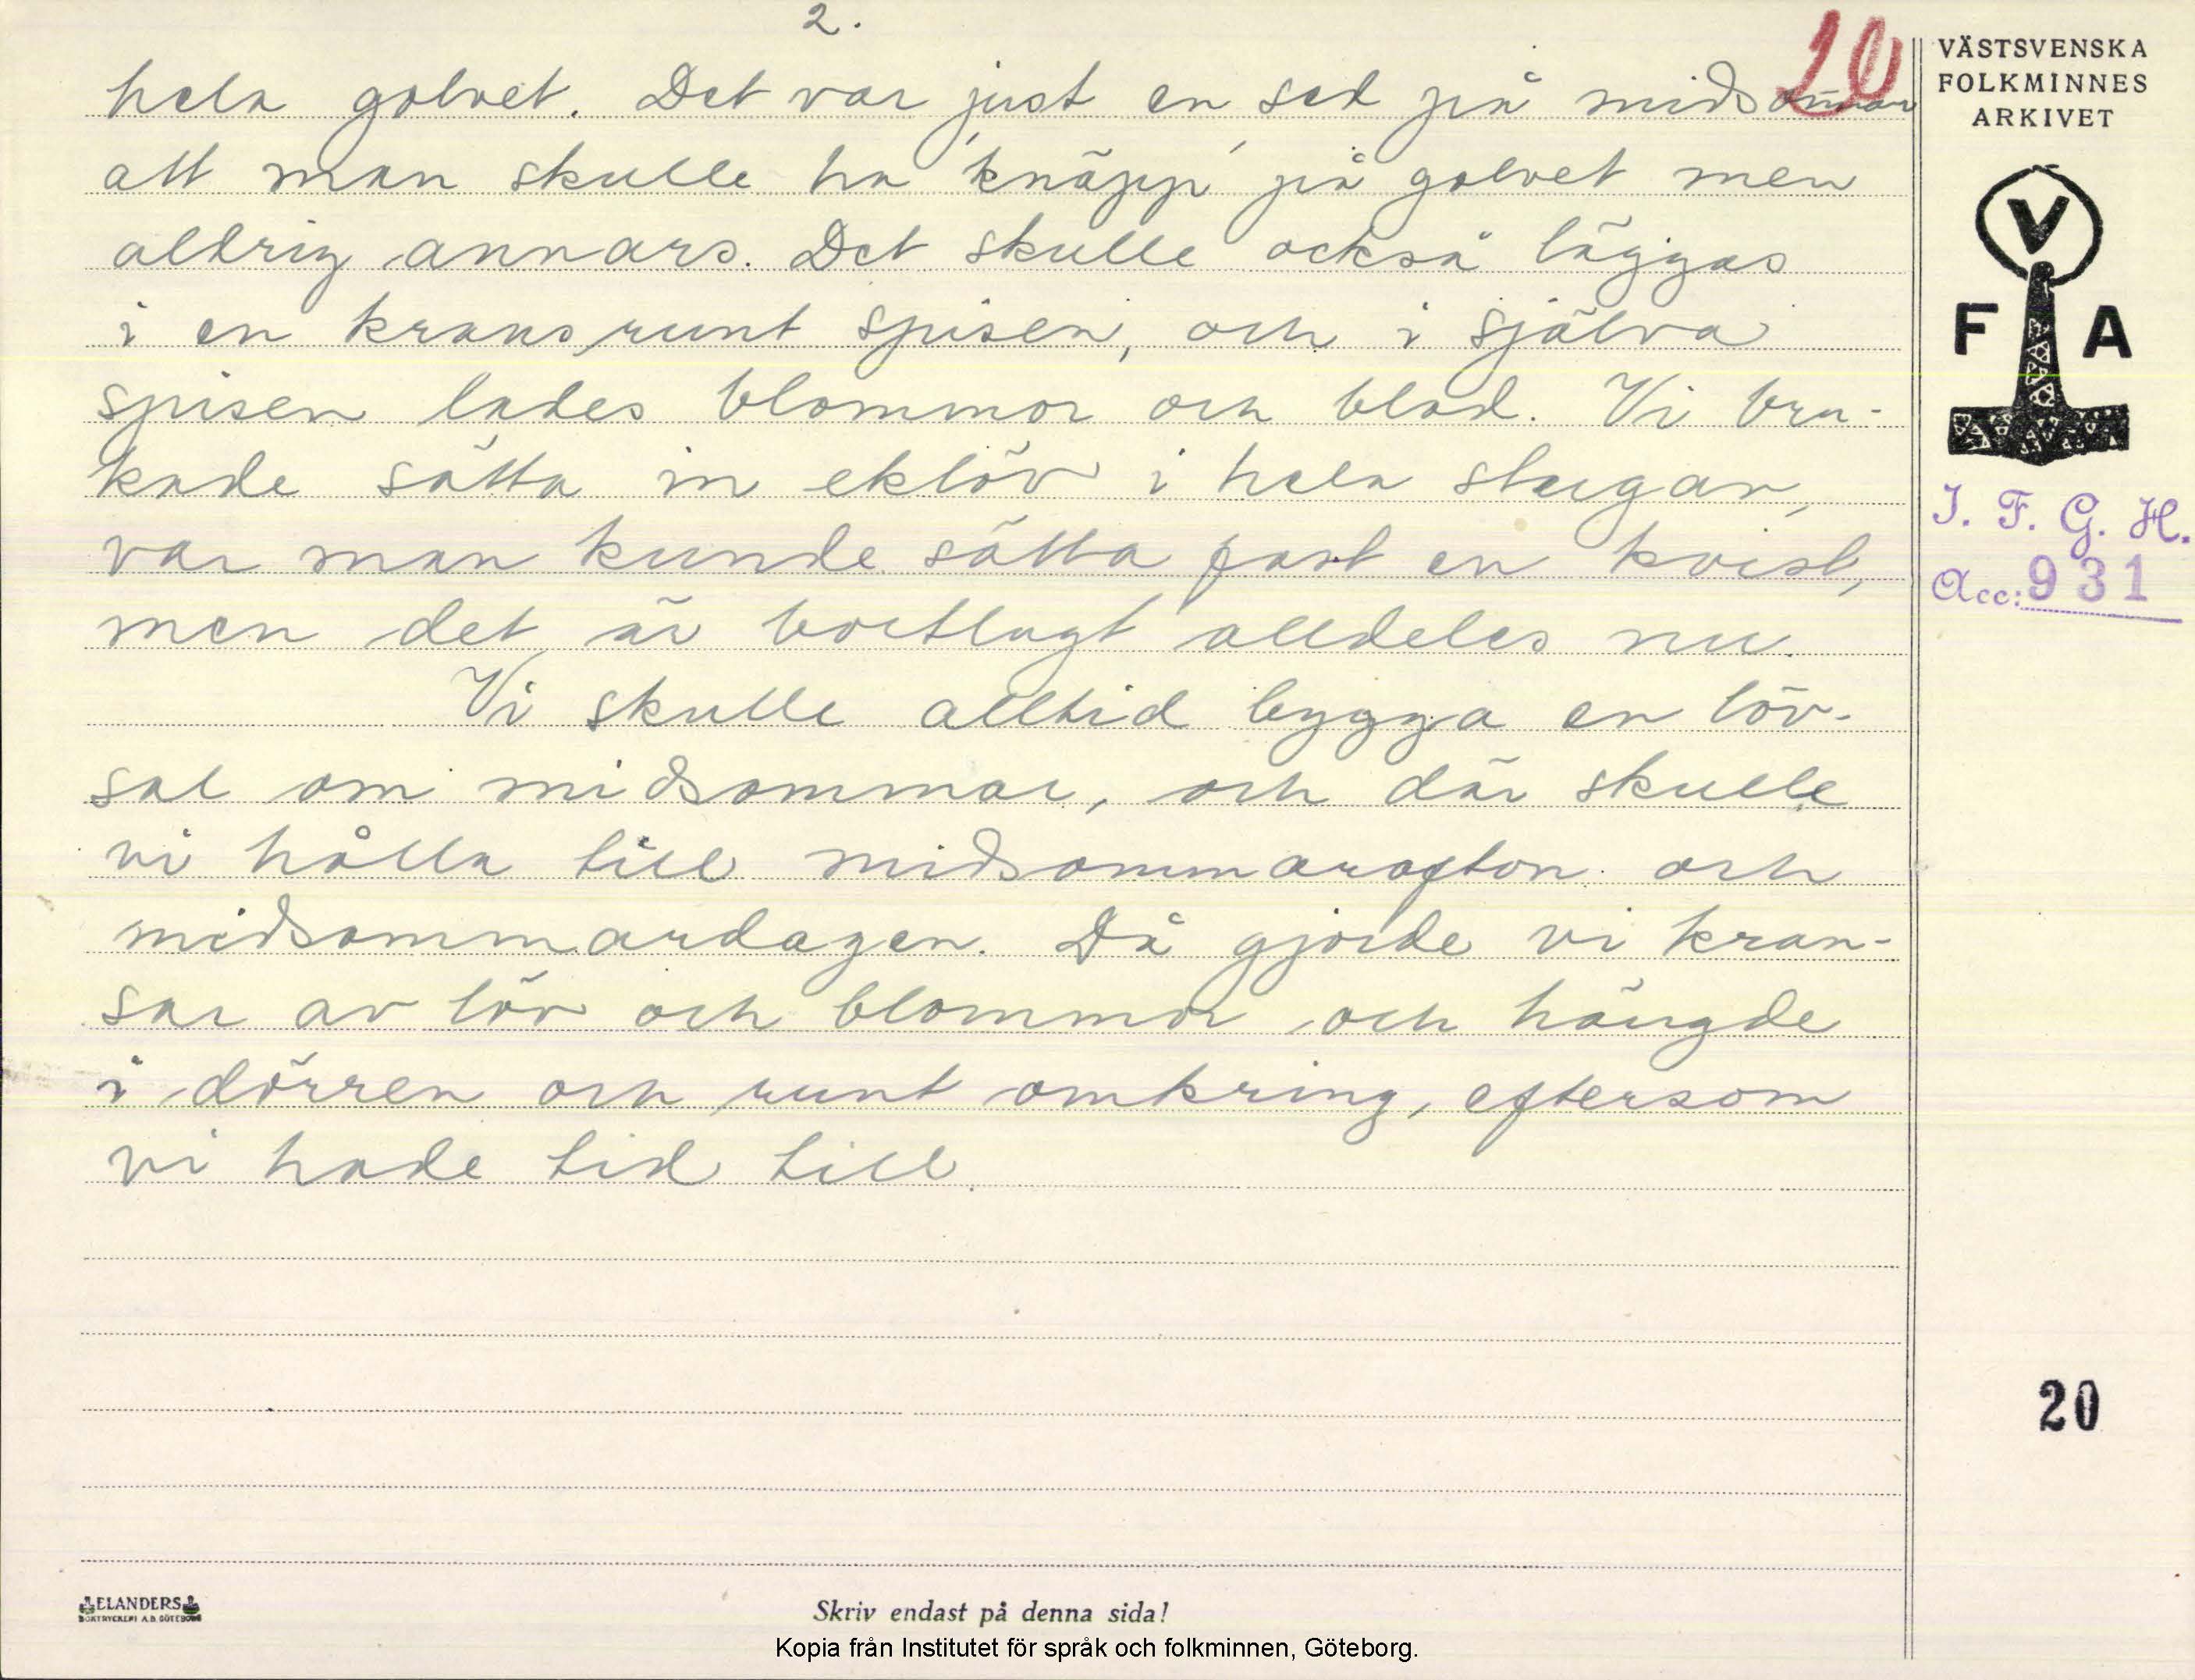 2.
20
hela golvet. Det var just en sed på midsommar
att man skulle ha 'knäpp' på golvet men
aldrig annars. Det skulle också läggas
i en krans runt spisen, och i själva
spisen lades blommor och blad. Vi bru-
kade sätta in eklöv i hela stugan,
var man kunde sätta fast en kvist,
men det är bortlagt alldeles nu.
Vi skulle alltid bygga en löv-
sal om midsommar, och där skulle
vi hålla till midsommarafton och
midsommardagen. Då gjorde vi kran-
sar av löv och blommor och hängde
i dörren och runt omkring, eftersom
vi hade tid till.
VÄSTSVENSKA
FOLKMINNES
ARKIVET
V
F A
I. F. G. H.
Acc: 931
20
ELANDERS
BOKTRYCKERI A.B. GÖTEBORG
Skriv endast på denna sida!
Kopia från Institutet för språk och folkminnen, Göteborg.